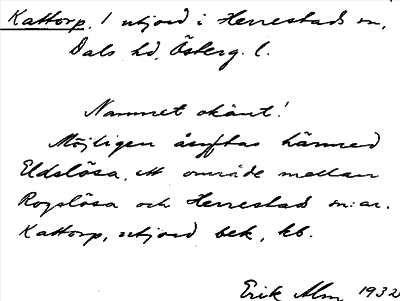 Kattorp, 1 utjord i Herrestads sn,
Dals hd, Österg. l.
Namnet okänt!
Möjligen åsyftas härmed
Eldslösa, ett område mellan
Rogslösa och Herrestad sn:ar.
Kattorp, utjord bek, kb.
Erik Alm 1932